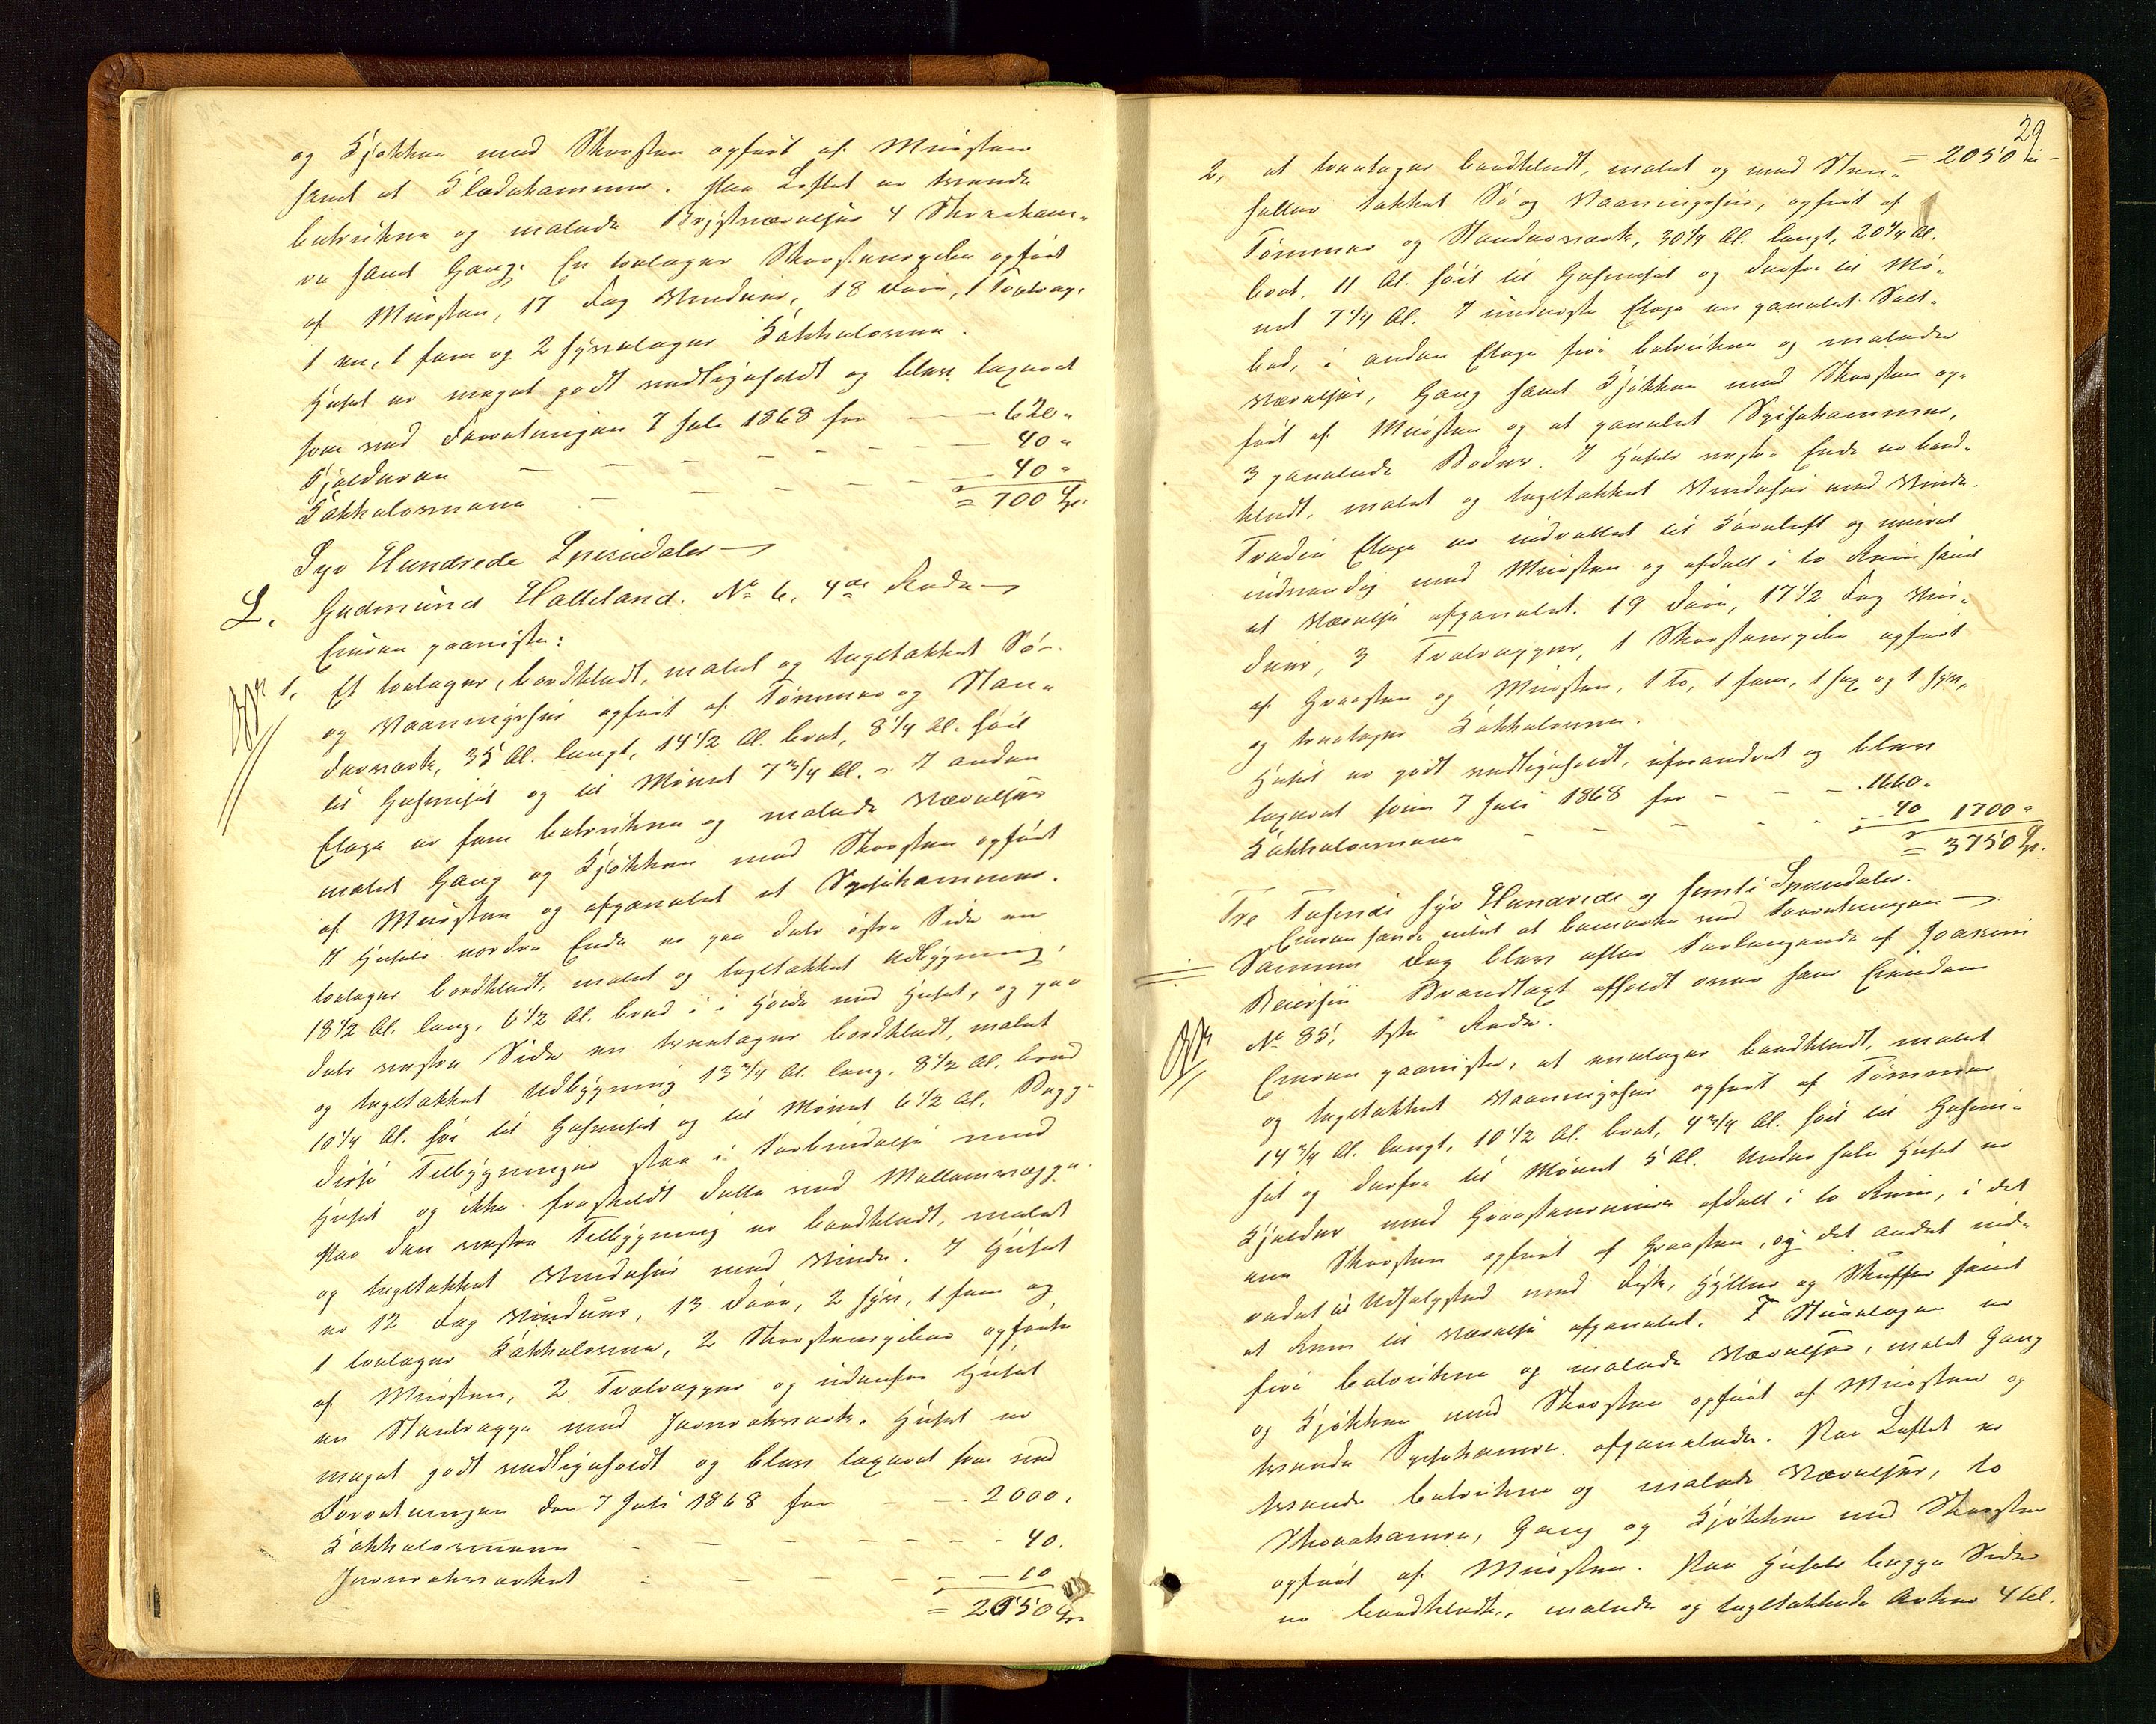 og Kjøkken med Skorsten opført af Muursten
samt et Klædekammer. Paa Loftet er tvende
betrukne og malede Kvistværelser 4 Skraakam-
re samt Gang. En toetages Skorstenspibe opført
af Muursten, 17 Fag Vinduer, 18 Døre, 1 Toptrap.
1 en, 1 fem og 2 fyretages Kakkelovne.
Huset er meget godt vedligeholdt og blev taxeret
som ved Forretningen 7 Juli 1868 for — — 620 "
Kjelderen — — — — — 40 "
Kakkelovnene — — — — 40 "
= 700 Spd.
Syv Hundrede Speciedaler —
L. Gudmund Halleland. No 6, 4de Rode —
Eieren paaviste:
1, Et toetages, bordklædt, malet og tegltækket Sø-
og Vaaningshus opført af Tømmer og Sten-
derværk, 35 Al. langt, 14 1/2 Al. bret, 8 1/4 Al. høit
til Gesimset og til Mønet 7 3/4 Al. - I anden
Etage er fem betrukne og malede Værelser
malet Gang og Kjøkken med Skorsten opført
af Muursten og afpanelet et Spisekammer.
I Husets nordre Ende er paa dets østre Side en
toetages bordklædt, malet og tegltækket Udbygning,
18 1/2 Al. lang, 6 1/2 Al. bred i i Høide med Huset, og paa
dets vestre Side en treetages bordklædt, malet
og tegltækket Udbygning 13 3/4 Al. lang, 8 1/2 Al. bred
10 1/4 Al. høi til Gesimset og til Mønet 6 1/2 Al. Begge
disse Tilbygninger staa i Forbindelse med
Huset og ikke fraskildt dette ved Mellemvægge.
Paa den vestre Tilbygning er bordklædt, malet
og tegltækket Vindehus med Vinde. I Huset
er 12 Fag Vinduer, 13 Døre, 2 fyr, 1 fem og
1 toetages Kakkelovne, 2 Skorstenspiber opførte
af Muursten, 2 Trætrapper og udenfor Huset
en Stentrappe med Jernrækværk. Huset er
meget godt vedligeholdt og blev taxeret som ved
Forretningen den 7 Juli 1868 for — — 2000.
Kakkelovnene — — — — — 40.
Jernrækværket — — — — 10
= 2050 Spd.
29
2, et treetages bordklædt, malet og med Sten- = 2050 "-
heller tækket Sø og Vaaningshus, opført af
Tømmer og Stenderværk, 30 1/4 Al. langt, 20 1/4 Al.
bret, 11 Al. høit til Gesimset og derfra til Mø-
net 7 1/4 Al. I underste Etage en panelet Salt-
bod, i anden Etage fire betrukne og malede
Værelser, Gang samt Kjøkken med Skorsten op-
ført af Muursten og et panelet Spisekammer,
3 panelede Boder. I Husets vestre Ende er bord-
klædt, malet og tegltækket Vindehus med Vinde.
Tredie Etage er indrettet til Korneloft og muret
indvendig med Muursten og afdelt i to Rum samt
et Værelse afpanelet. 19 Døre, 17 1/2 Fag Vin-
duer, 3 Trætrapper, 1 Skorstenspibe opført
af Graasten og Muursten, 1 to, 1 fem, 1 sex og 1 fyr,
og treetages Kakkelovne.
Huset er godt vedligeholdt, uforandret og blev
taxeret som 7 Juli 1868 for — — — 1660.
Kakkelovnene — — — — 40 1700 "
= 3750 Spd.
Tre Tusinde syv Hundrede og femti Speciedaler.
Eieren havde intet at bemærke ved Forretningen —
Samme Dag blev efter Forlangende af Joakim
Reiersen Brandtaxt afholdt over hans Eiendom
No 85, 1ste Rode.
Eieren paaviste, et enetages bordklædt, malet
og tegltækket Vaaningshus opført af Tømmer
14 3/4 Al. langt, 10 1/2 Al. bret, 4 3/4 Al. høit til Gesim-
set og derfra til Mønet 5 Al. Under hele Huset er
Kjelder med Graastensmure afdelt i to Rum, i det
ene Skorsten opført af Graasten, og det andet ind-
redet til Udsalgsted med Disk, Hylder og Skuffer samt
et Rum til Værelse afpanelet. I Stueetagen er
fire betrukne og malede Værelser, malet Gang
og Kjøkken med Skorsten opført af Muursten og
tvende Spisekamre afpanelede. Paa Loftet er
tvende betrukne og malede Værelser, to
Skraakamre, Gang og Kjøkken med Skorsten
opført af Muursten. Paa Husets begge Sider
er bordklædte, malede og tegltækkede Arker 4 Al.